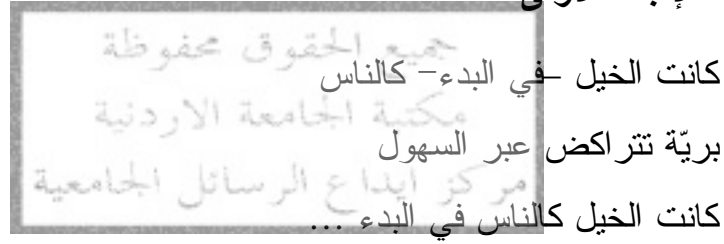 كانت الخيل –في البدء– كالناس
بريّة تتراكض عبر السهول
كانت الخيل كالناس في البدء ...
جميع الحقوق محفوظة
مكتبة الجامعة الاردنية
مركز ايداع الرسائل الجامعية